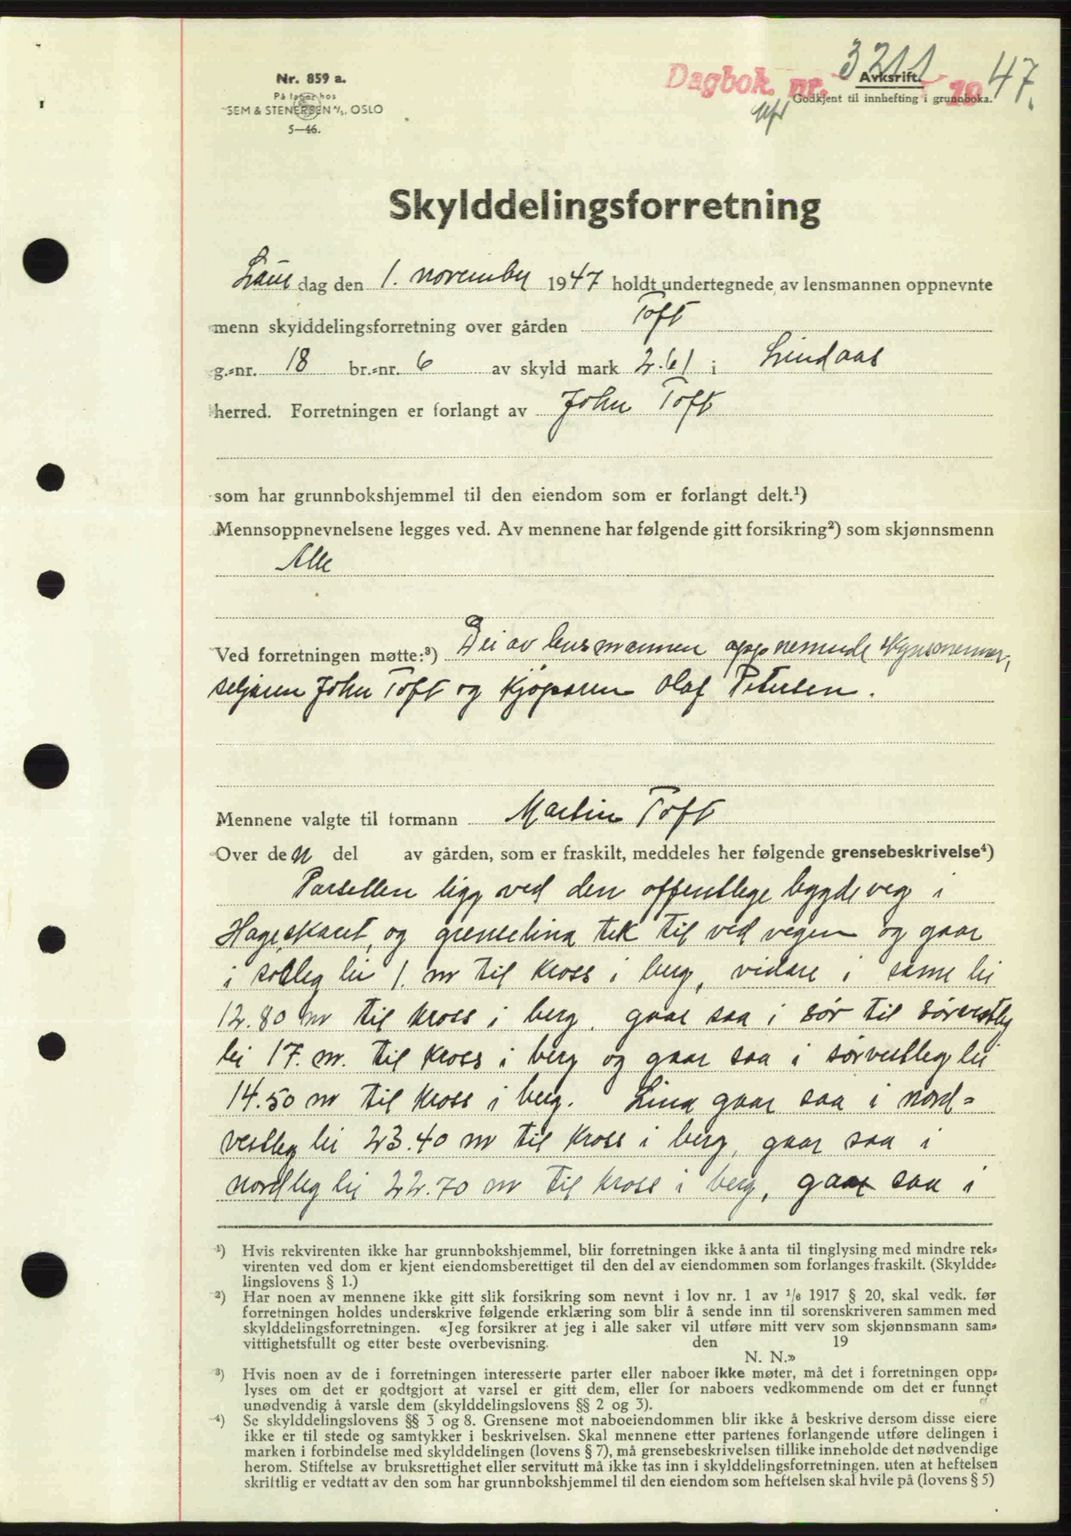 Nr. 859 a.
På lager hos
SEM & STENERSEN A/S, OSLO
5—46.
Dagbok nr. 3211 1947.
Avkrift.
Godkjent til innhefting i grunnboka.
Skylddelingsforretning
Laur dag den 1. november 1947 holdt undertegnede, av lensmannen oppnevnte
menn skylddelingsforretning over gården Toft
g.-nr. 18 br.-nr. 6 av skyld mark 2.61 i Lindaas
herred. Forretningen er forlangt av John Toft
som har grunnbokshjemmel til den eiendom som er forlangt delt.¹)
Mennsoppnevnelsene legges ved. Av mennene har følgende gitt forsikring²) som skjønnsmenn
Alle
Ved forretningen møtte:³) Dei av lensmannen oppnemnde
seljaren John Toft og kjøparen Olaf Petersen.
Mennene valgte til formann Martin Toft
Over den del av gården, som er fraskilt, meddeles her følgende grensebeskrivelse⁴)
Parsellen ligg ved den offentlege bygdeveg i
Hageskaret, og grenselina tek til ved vegen og gaar
i lei 1. m til kross i berg, vidare i same lei
12.80 m til kross i berg, gaar saa i sør til
lei 17. m. til kross i berg og gaar saa i sørvestleg lei
14.50 m til kross i berg. Lina gaar saa i nord-
vestleg lei 23.40 m til kross i berg, gaar saa i
nordleg lei 22.70 m til kross i berg, gaar saa i
¹) Hvis rekvirenten ikke har grunnbokshjemmel, blir forretningen ikke å anta til tinglysing med mindre rek-
virenten ved dom er kjent eiendomsberettiget til den del av eiendommen som forlanges fraskilt. (Skyldde-
lingslovens § 1.)
²) Har noen av mennene ikke gitt slik forsikring som nevnt i lov nr. 1 av 1/6 1917 § 20, skal vedk. før
forretningen holdes underskrive følgende erklæring som blir å sende inn til sorenskriveren sammen med
skylddelingsforretningen. «Jeg forsikrer at jeg i alle saker vil utføre mitt verv som skjønnsmann sam-
vittighetsfullt og etter beste overbevisning. den 19
N. N.»
³) Hvis noen av de i forretningen interesserte parter eller naboer ikke møter, må det i forretningen opp-
lyses om det er godtgjort at varsel er gitt dem, eller for naboers vedkommende om det er funnet
unødvendig å varsle dem (skylddelingslovens §§ 2 og 3).
⁴) Se skylddelingslovens §§ 3 og 8. Grensene mot naboeiendommen blir ikke å beskrive dersom disse eiere
ikke er til stede og samtykker i beskrivelsen. Skal mennene etter partenes forlangende utføre delingen i
marken i forbindelse med skylddelingen (lovens § 7), må grensebeskrivelsen tillike inneholde det nødvendige
herom. Stiftelse av bruksrettighet eller servitutt må ikke tas inn i skylddelingsforretningen, uten at heftelsen
skriftlig er vedtatt av den som har grunnbokshjemmel til den eiendom som heftelsen skal hvile på (lovens § 5)